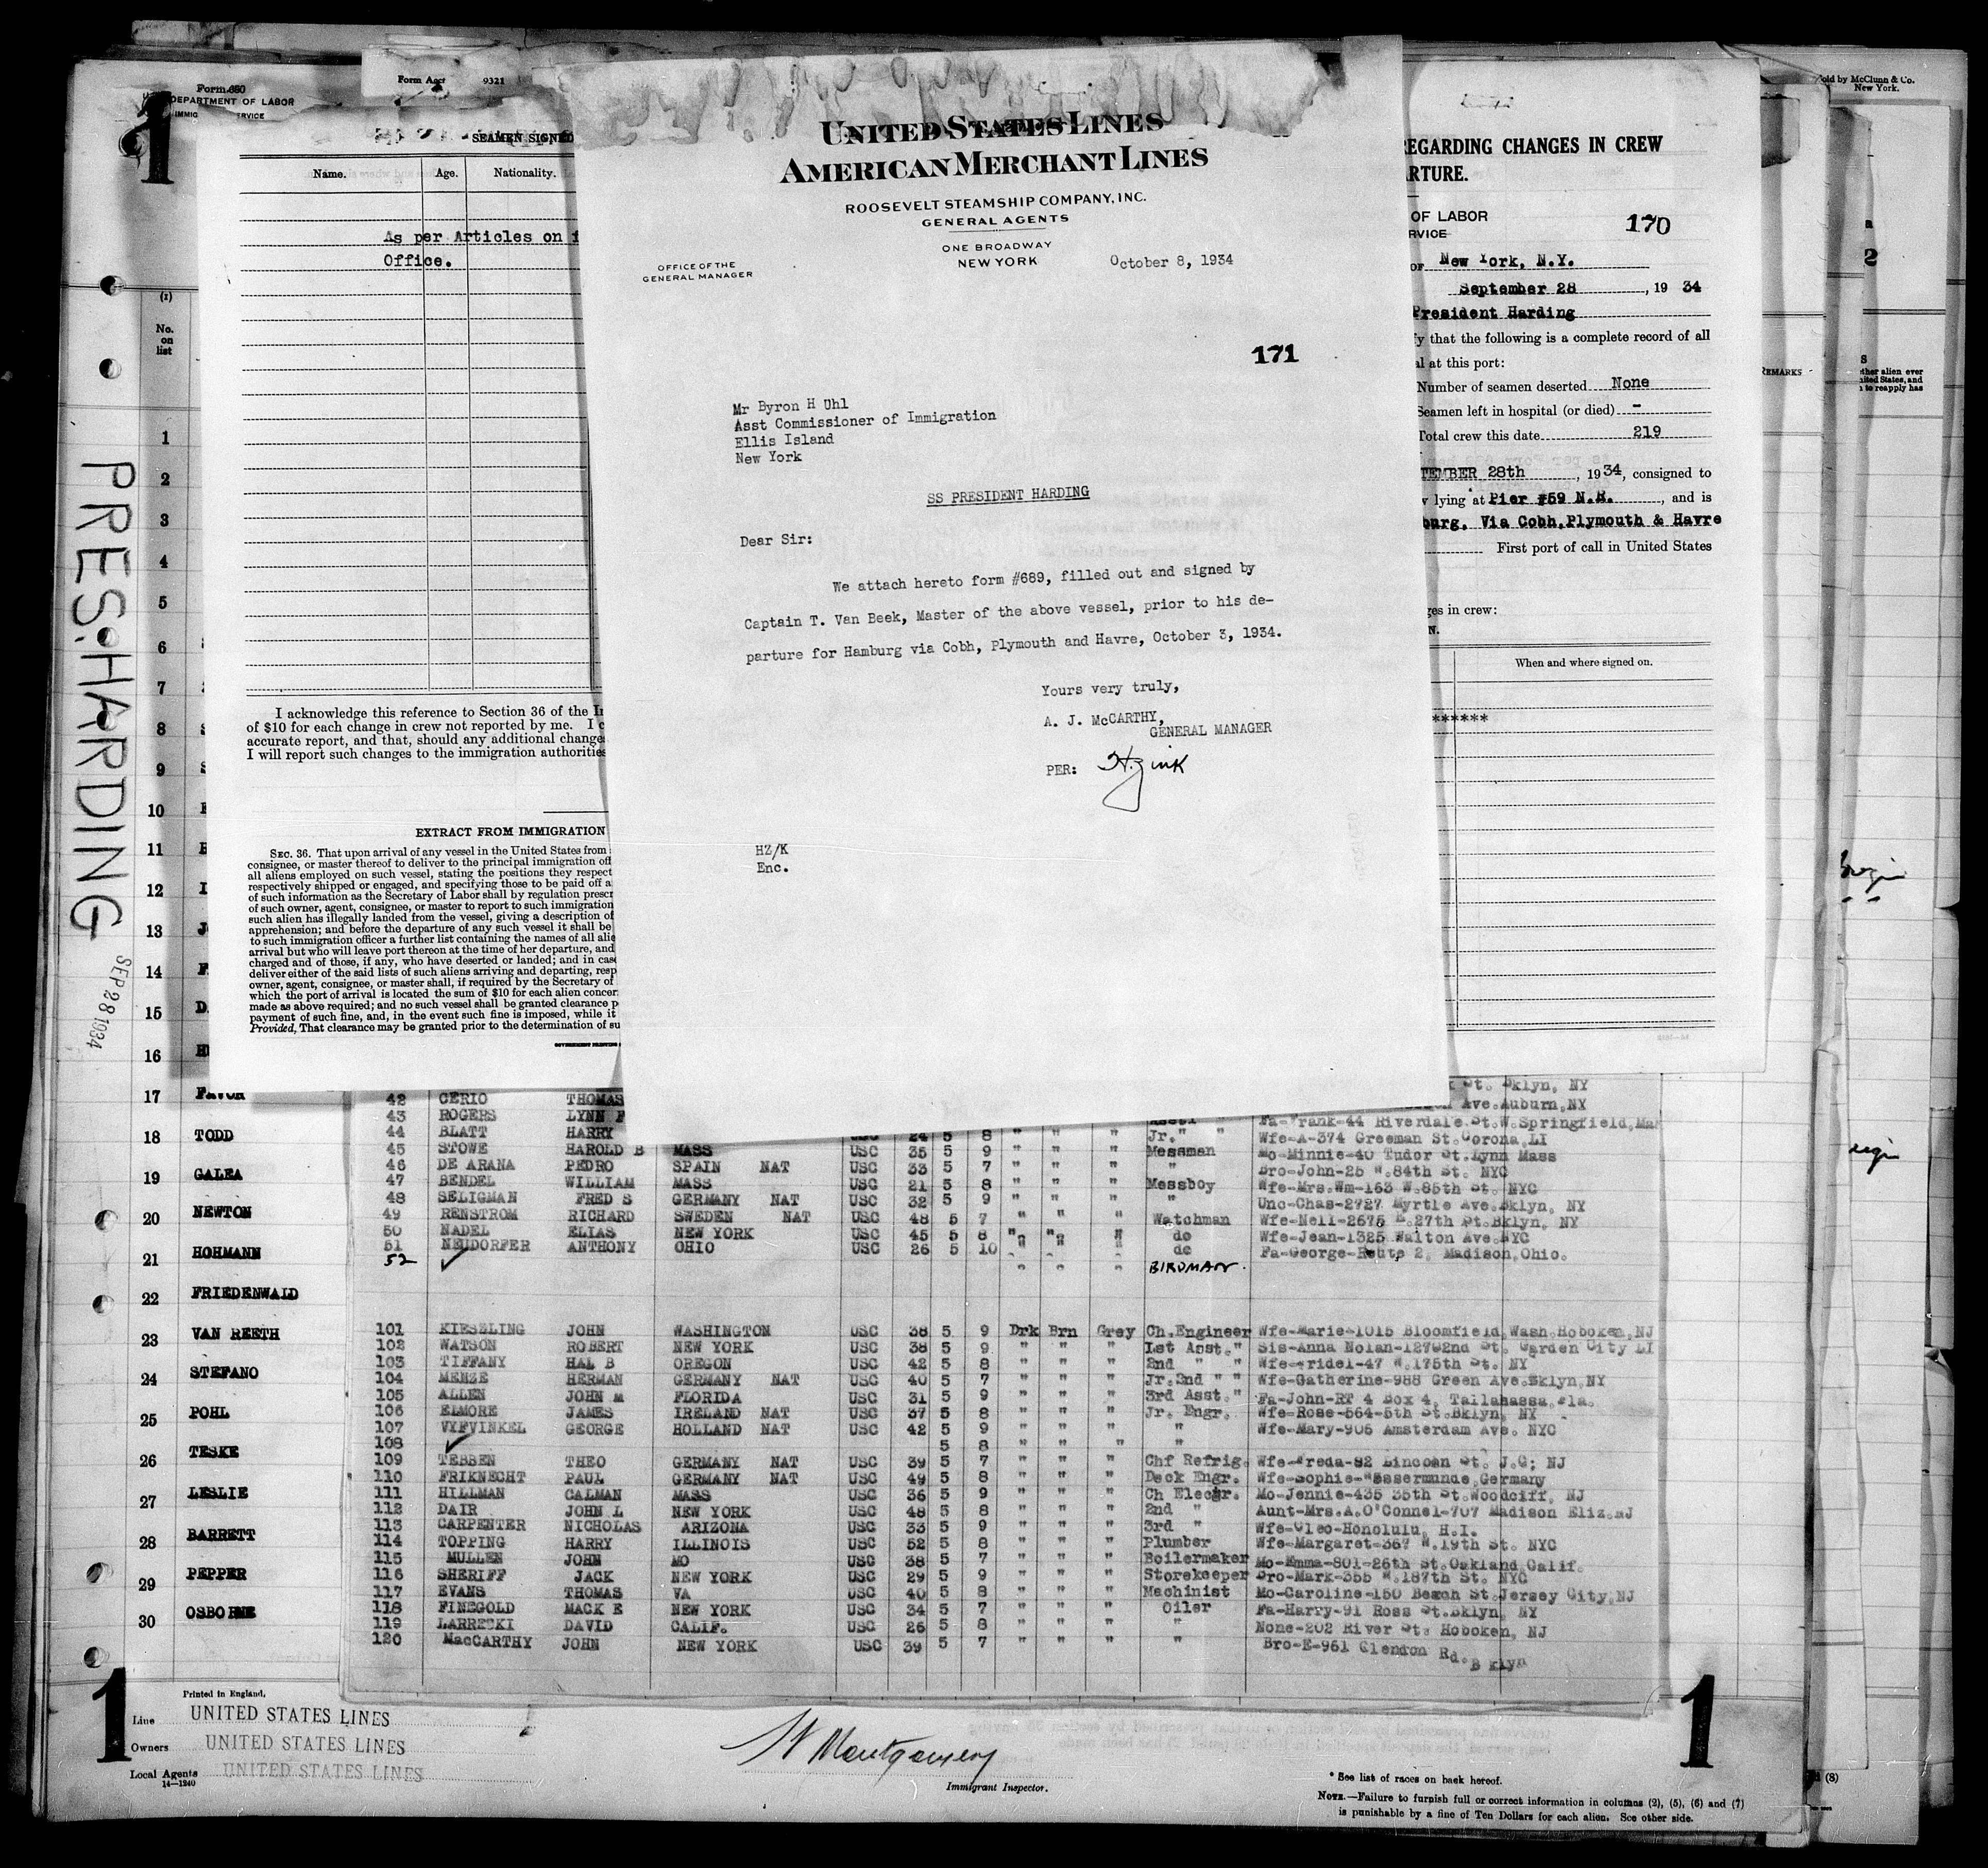 Form 680
DEPARTMENT OF LABOR
1
Form Acct 9321
SEAMEN SIGNED
Name. Age. Nationality.
As per Articles on
Office.
I acknowledge this reference to Section 36 of the
of $10 for each change in crew not reported by me. I
accurate report, and that, should any additional change
I will report such changes to the immigration authorities
EXTRACT FROM IMMIGRATION
SEC. 36. That upon arrival of any vessel in the United States from
consignee, or master thereof to deliver to the principal immigration
all aliens employed on such vessel, stating the positions they
respectively shipped or engaged, and specifying those to be paid off
of such information as the Secretary of Labor shall by regulation
of such owner, agent, consignee, or master to report to such immigration
such alien has illegally landed from the vessel, giving a description of
apprehension; and before the departure of any such vessel it shall be
to such immigration officer a further list containing the names of all
arrival but who will leave port thereon at the time of her departure, and
charged and of those, if any, who have deserted or landed; and in
deliver either of the said lists of such aliens arriving and departing,
owner, agent, consignee, or master shall, if required by the Secretary of
which the port of arrival is located the sum of $10 for each alien
made as above required; and no such vessel shall be granted clearance
payment of such fine, and, in the event such fine is imposed, while it
Provided, That clearance may be granted prior to the determination of
UNITED STATES LINES
AMERICAN MERCHANT LINES
ROOSEVELT STEAMSHIP COMPANY, INC.
GENERAL AGENTS
ONE BROADWAY
NEW YORK
OFFICE OF THE
GENERAL MANAGER
October 8, 1934
171
Mr Byron H Uhl
Asst Commissioner of Immigration
Ellis Island
New York
SS PRESIDENT HARDING
Dear Sir:
We attach hereto form #689, filled out and signed by
Captain T. Van Beek, Master of the above vessel, prior to his de-
parture for Hamburg via Cobh, Plymouth and Havre, October 3, 1934.
Yours very truly,
A. J. McCARTHY,
GENERAL MANAGER
PER: H.Zink
HZ/K
Enc.
REGARDING CHANGES IN CREW
OF LABOR
170
New York, N.Y.
September 28, 1934
President Harding
that the following is a complete record of all
at this port:
Number of seamen deserted None
Seamen left in hospital (or died) -
Total crew this date 219
28th, 1934, consigned to
lying at Pier #59 N.R., and is
Via Cobh, Plymouth & Havre
First port of call in United States
in crew:
When and where signed on.
*******
Sold by McClunn & Co.
New York.
REMARKS
2
PRES. HARDING
SEP 28 1934
(1)
No.
on
list
1
2
3
4
5
6
7
8
9
10
11
12
13
14
15
16
17 FAVOR
18 TODD
19 GALEA
20 NEWTON
21 HOHMANN
22 FRIEDENWALD
23 VAN REETH
24 STEFANO
25 POHL
26 TESKE
27 LESLIE
28 BARRETT
29 PEPPER
30 OSBORNE
St. Bklyn, NY
42 CERIO THOMAS Ave. Auburn, NY
43 ROGERS LYNN F Fa-Frank-44 Riverdale St. W. Springfield,
44 BLATT HARRY USC 24 5 8 " " " Jr." " Wfe-A-374 Greeman St. Corona, LI
45 STOWE HAROLD B MASS USC 35 5 9 " " " Messman Mo-Minnie-40 Tudor St. Lynn Mass
46 DE ARANA PEDRO SPAIN NAT USC 33 5 7 " " " " Bro-John-25 W. 84th St. NYC
47 BENDEL WILLIAM MASS USC 21 5 8 " " " Messboy Wfe-Mrs. Wm-163 W. 85th St. NYC
48 SELIGMAN FRED S GERMANY NAT USC 32 5 9 " " " " Unc-Chas-2727 Myrtle Ave. Bklyn, NY
49 RENSTROM RICHARD SWEDEN NAT USC 48 5 7 " " " Watchman Wfe-Nell-2675 E. 27th St. Bklyn, NY
50 NADEL ELIAS NEW YORK USC 45 5 8 " " " do Wfe-Jean-1325 Walton Ave. NYC
51 NEUDORFER ANTHONY OHIO USC 26 5 10 " " " do Fa-George-Route 2, Madison, Ohio.
52 " " " BIRDMAN.
101 KIESSLING JOHN WASHINGTON USC 38 5 9 Drk Brn Grey Ch. Engineer Wfe-Marie-1015 Bloomfield, Wash, Hoboken, NJ
102 WATSON ROBERT NEW YORK USC 38 5 9 " " " 1st Asst. " Sis-Anna Nolan-12702nd St. Garden City LI
103 TIFFANY HAL B OREGON USC 42 5 8 " " " 2nd " " Wfe-Fridel-47 W. 175th St. NY
104 MENZE HERMAN GERMANY NAT USC 40 5 7 " " " Jr. 2nd " " Wfe-Catherine-988 Green Ave. Bklyn, NY
105 ALLEN JOHN M FLORIDA USC 31 5 9 " " " 3rd Asst. " Fa-John-RT 4 Box 4, Tallahassa, Fla.
106 ELMORE JAMES IRELAND NAT USC 37 5 8 " " " Jr. Engr. Wfe-Rose-564-5th St. Bklyn, NY
107 VYFVINKEL GEORGE HOLLAND NAT USC 42 5 9 " " " " Wfe-Mary-905 Amsterdam Ave. NYC
108 5 8 " " " "
109 TEBBEN THEO GERMANY NAT USC 39 5 7 " " " Chf Refrig. Wfe-Freda-92 Lincoan St. J.C; NJ
110 FRIKNECHT PAUL GERMANY NAT USC 49 5 8 " " " Deck Engr. Wfe-Sophie-Wesermunde, Germany
111 HILLMAN CALMAN MASS USC 36 5 9 " " " Ch Elecgr. Mo-Jennie-435 35th St. Woodciff, NJ
112 DAIR JOHN L NEW YORK USC 48 5 8 " " " 2nd " Aunt-Mrs. A. O'Connel-707 Madison Eliz. NJ
113 CARPENTER NICHOLAS ARIZONA USC 33 5 9 " " " 3rd " Wfe-Cleo-Honolulu, H.I.
114 TOPPING HARRY ILLINOIS USC 52 5 8 " " " Plumber Wfe-Margaret-367 W. 19th St. NYC
115 MULLEN JOHN MO USC 38 5 7 " " " Boilermaker Mo-Emma-801-26th St. Oakland, Calif.
116 SHERIFF JACK NEW YORK USC 29 5 9 " " " Storekeeper Bro-Mark-355 W. 187th St. NYC
117 EVANS THOMAS VA USC 40 5 8 " " " Machinist Mo-Caroline-150 Beach St. Jersey City, NJ
118 FINEGOLD MACK E NEW YORK USC 34 5 7 " " " Oiler Fa-Harry-91 Ross St. Bklyn, NY
119 LARRECKI DAVID CALIF. USC 26 5 8 " " " " None-202 River St; Hoboken, NJ
120 MacCARTHY JOHN NEW YORK USC 39 5 7 " " " " Bro-E-961 Clendon Rd. B klyn
1
1
Printed in England.
Line UNITED STATES LINES
Owners UNITED STATES LINES
Local Agents UNITED STATES LINES
14-1240
W Montgomery
Immigrant Inspector.
* See list of races on back hereof.
NOTE.—Failure to furnish full or correct information in columns (2), (5), (6) and (7)
is punishable by a fine of Ten Dollars for each alien. See other side.
(8)